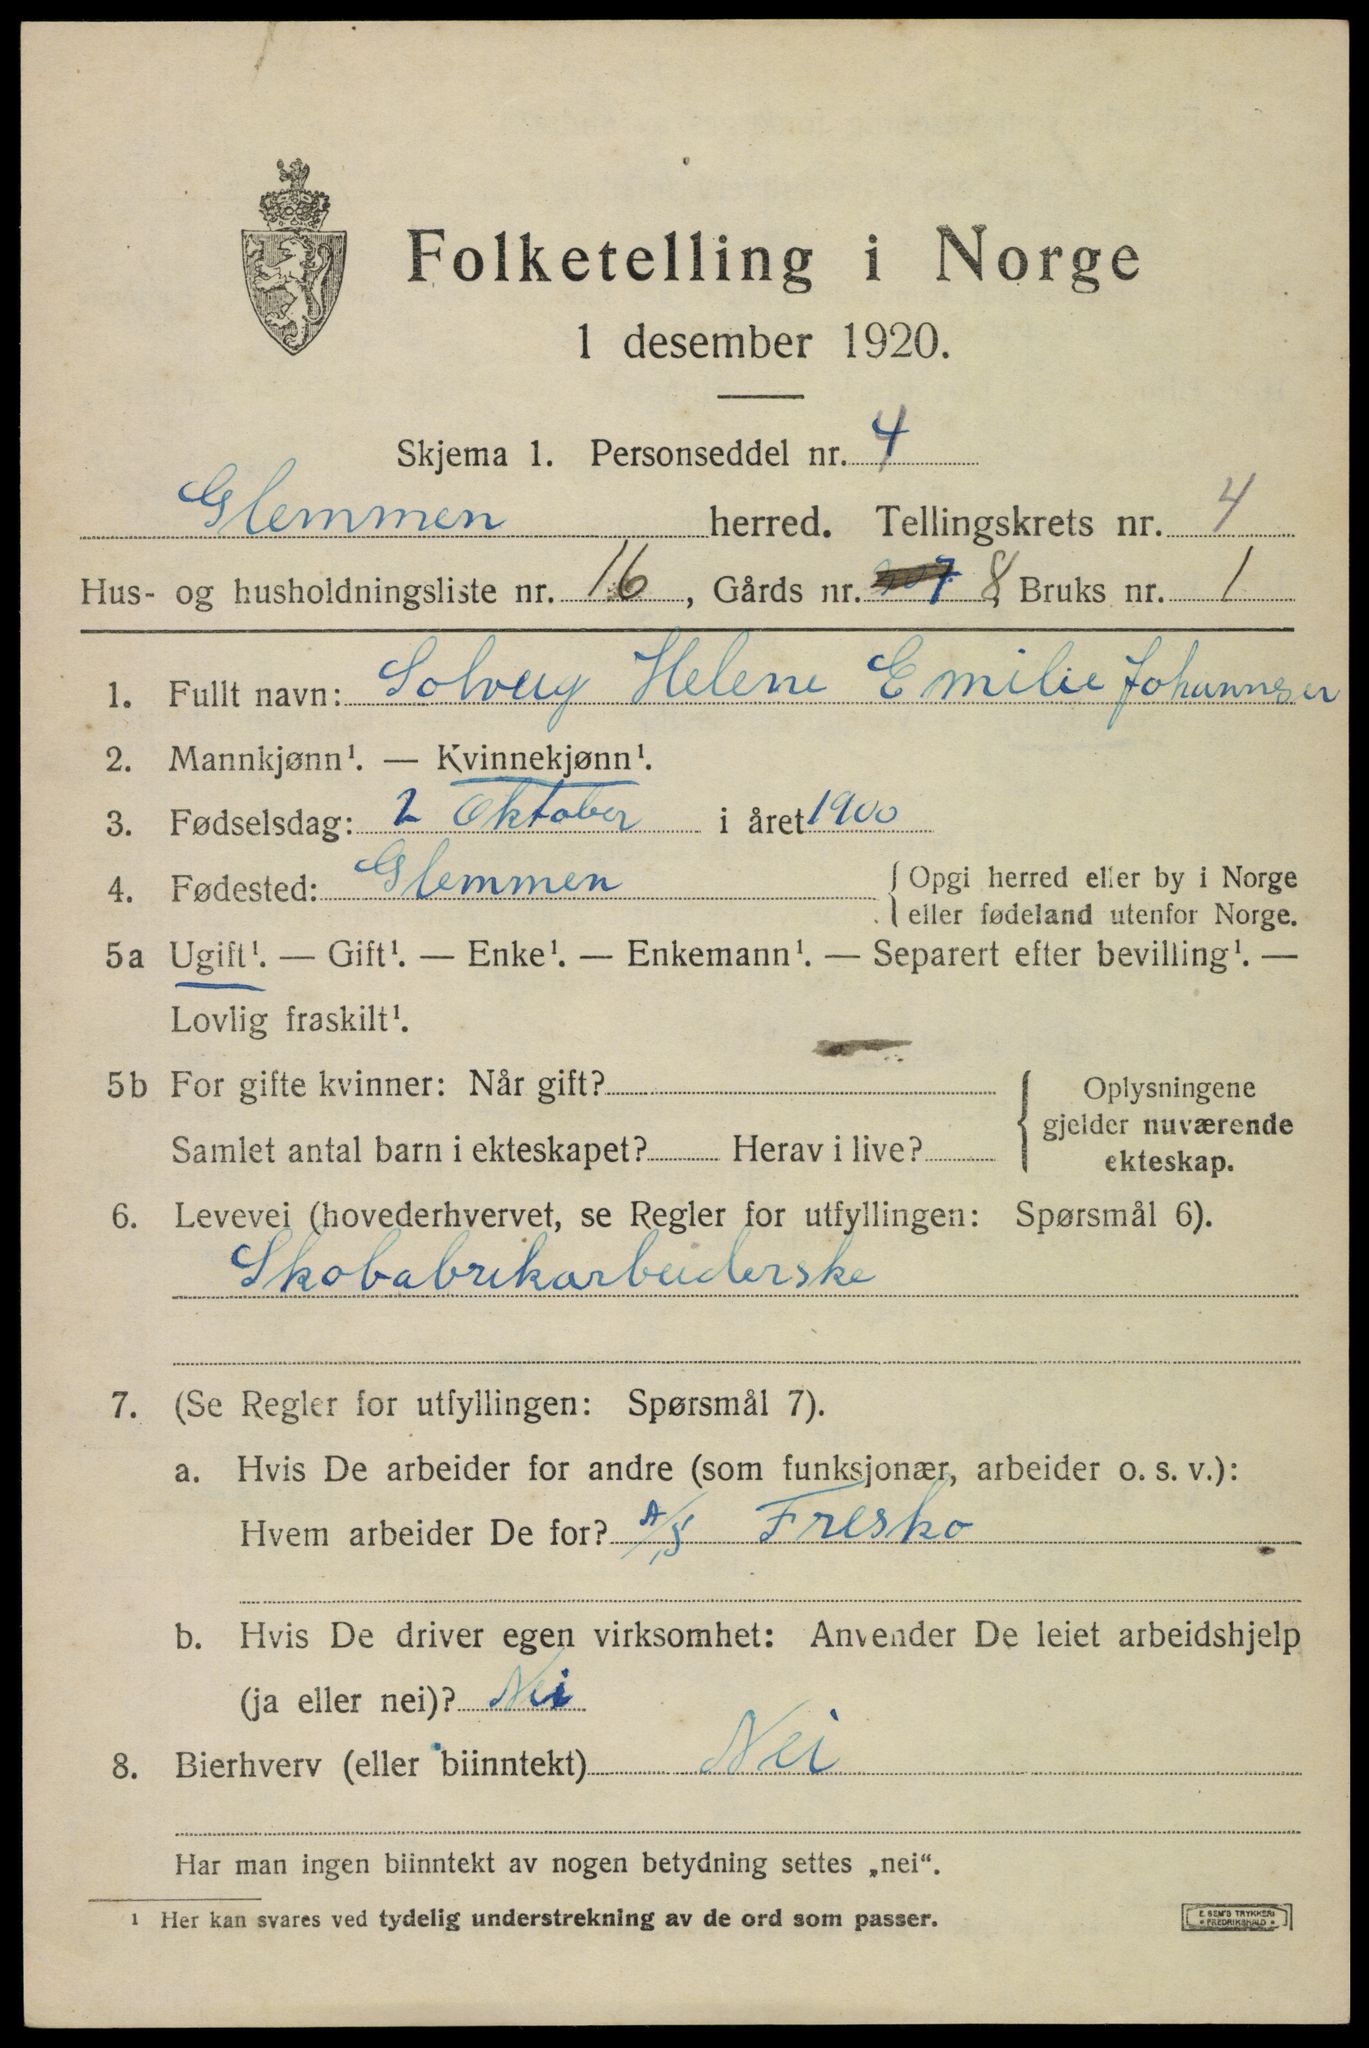 Folketelling i Norge
1 desember 1920.
Skjema 1. Personseddel nr. 4
Glemmen herred. Tellingskrets nr. 4
Hus- og husholdningsliste nr. 16, Gårds nr. 8 Bruks nr. 1
1. Fullt navn: Solveig Helene Emilie Johannesen
2. Mannkjønn¹. — Kvinnekjønn¹.
3. Fødselsdag: 2 Oktober i året 1900
4. Fødested: Glemmen { Opgi herred eller by i Norge
eller fødeland utenfor Norge.
5a Ugift¹. — Gift¹. — Enke¹. — Enkemann¹. — Separert efter bevilling¹. —
Lovlig fraskilt¹.
5b For gifte kvinner: Når gift? { Oplysningene
gjelder nuværende
Samlet antal barn i ekteskapet? Herav i live? ekteskap.
6. Levevei (hovederhvervet, se Regler for utfyllingen: Spørsmål 6).
Skobabrikarbeiderske
7. (Se Regler for utfyllingen: Spørsmål 7).
a. Hvis De arbeider for andre (som funksjonær, arbeider o. s. v.):
Hvem arbeider De for? A/S Fresko
b. Hvis De driver egen virksomhet: Anvender De leiet arbeidshjelp
(ja eller nei)? Nei
8. Bierhverv (eller biinntekt) Nei
Har man ingen biinntekt av nogen betydning settes „nei“.
¹ Her kan svares ved tydelig understrekning av de ord som passer.
E. SEM'S TRYKKERI
FREDRIKSHALD